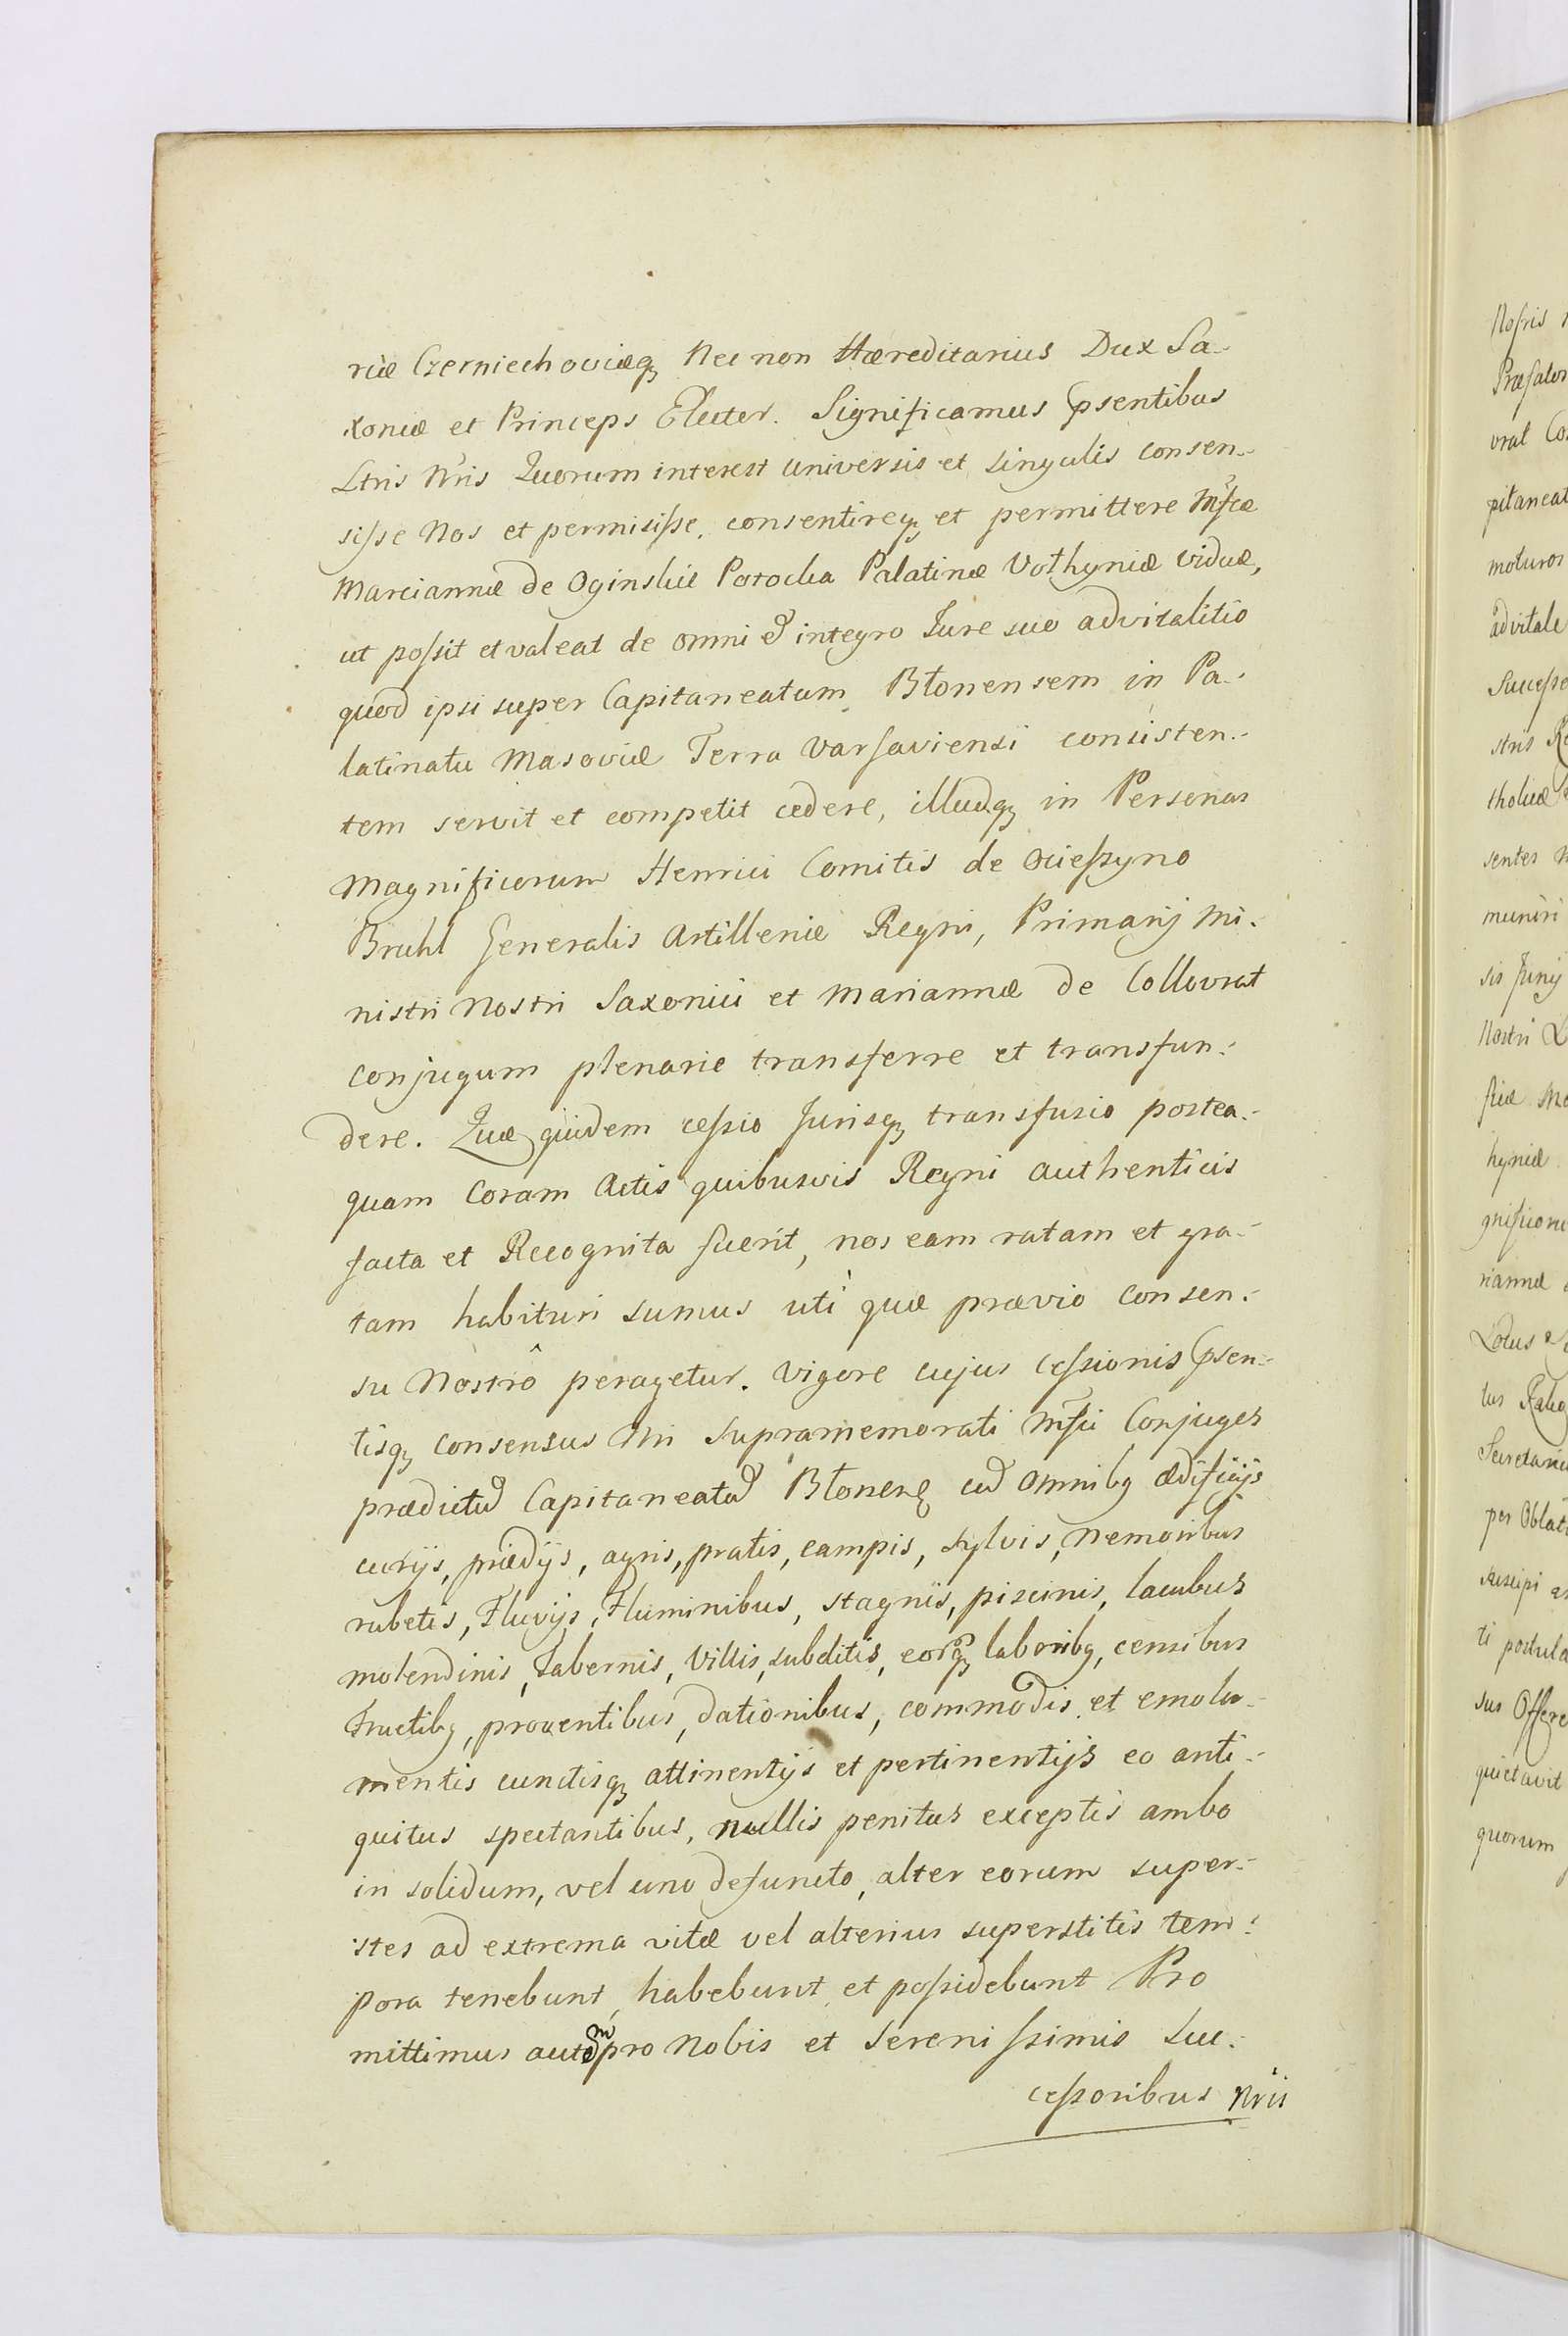 riæ Czerniechoviæq₃ Nec non Hæreditarius Dux Sa-
xoniæ et Princeps Elector. Significamus p̄sentibus
Ltris Nris Quorum interest universis et singulis consen-
siſse Nos et permisiſse, consentireq₃ et permittere Mfcæ
Marciannæ de Oginskie Potocka Palatinæ Volhyniæ viduæ,
ut poſsit et valeat de omni et integro Jure suo advitalitio
quod ipsi super Capitaneatum Błonensem in Pa-
latinatu Masoviæ Terra Varsaviensi consisten-
tem servit et competit cedere, illudq₃ in Personas
Magnificorum Henrici Comitis de Ocieſzyno
Bruhl Generalis Artilleriæ Regni, Primarij Mi-
nistri Nostri Saxonici et Mariannæ de Collovrat
conjugum plenarie transferre et transfun-
dere. Quæ quidem ceſsio Jurisq₃ transfusio postea-
quam Coram Actis quibusvis Regni authenticis
facta et Recognita fuerit, nos eam ratam et gra-
tam habituri sumus uti quæ prævio consen-
su Nostrô peragetur. Vigore cujus ceſsionis p̄sen-
tisq₃ consensus Nri Supramemorati Mfci Conjuges
prædictū Capitaneatū Błonen̄ cū omnibq ædificijs
curijs, prædijs, agris, pratis, campis, sylvis, nemoribus
rubetis, Fluvijs, Fluminibus, stagnis, piscinis, lacubus
molendinis, Tabernis, Villis, subditis, eorq₃ laboribq, censibus
Fructibq, proventibus, dationibus, commodis et emolu-
mentis cunctisq₃ attinentijs et pertinentijs eo anti-
quitus spectantibus, nullis penitus exceptis ambo
in solidum, vel uno defuncto, alter eorum super-
stes ad extrema vitæ vel alterius superstitis tem-
pora tenebunt, habebunt et poſsidebunt Pro
mittimus autem pro Nobis et Sereniſsimis Suc-
ceſsoribus Nris